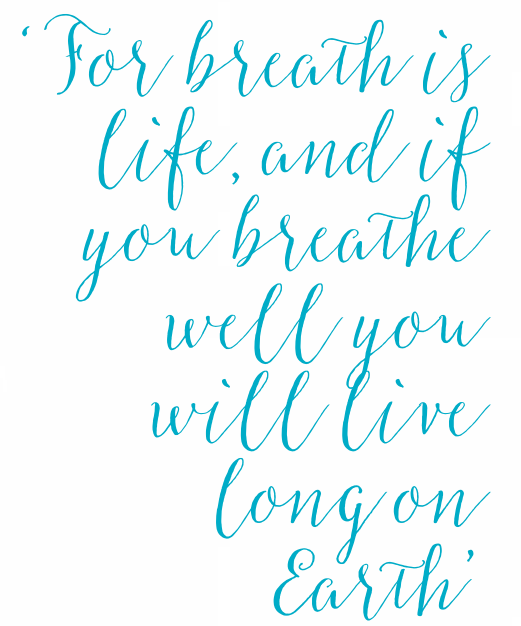 ‘For breath is
life, and if
you breathe
well you
will live
long on
Earth’